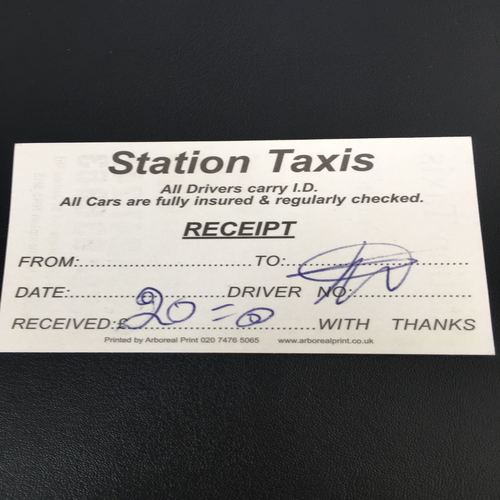 Station Taxis
All Drivers carry I.D.
All Cars are fully insured & regularly checked.
RECEIPT
FROM:..............................TO:..............................
DATE:....................DRIVER NO:....................
RECEIVED:£ 20=0 ....................WITH THANKS
Printed by Arboreal Print 020 7476 5065 www.arborealprint.co.uk